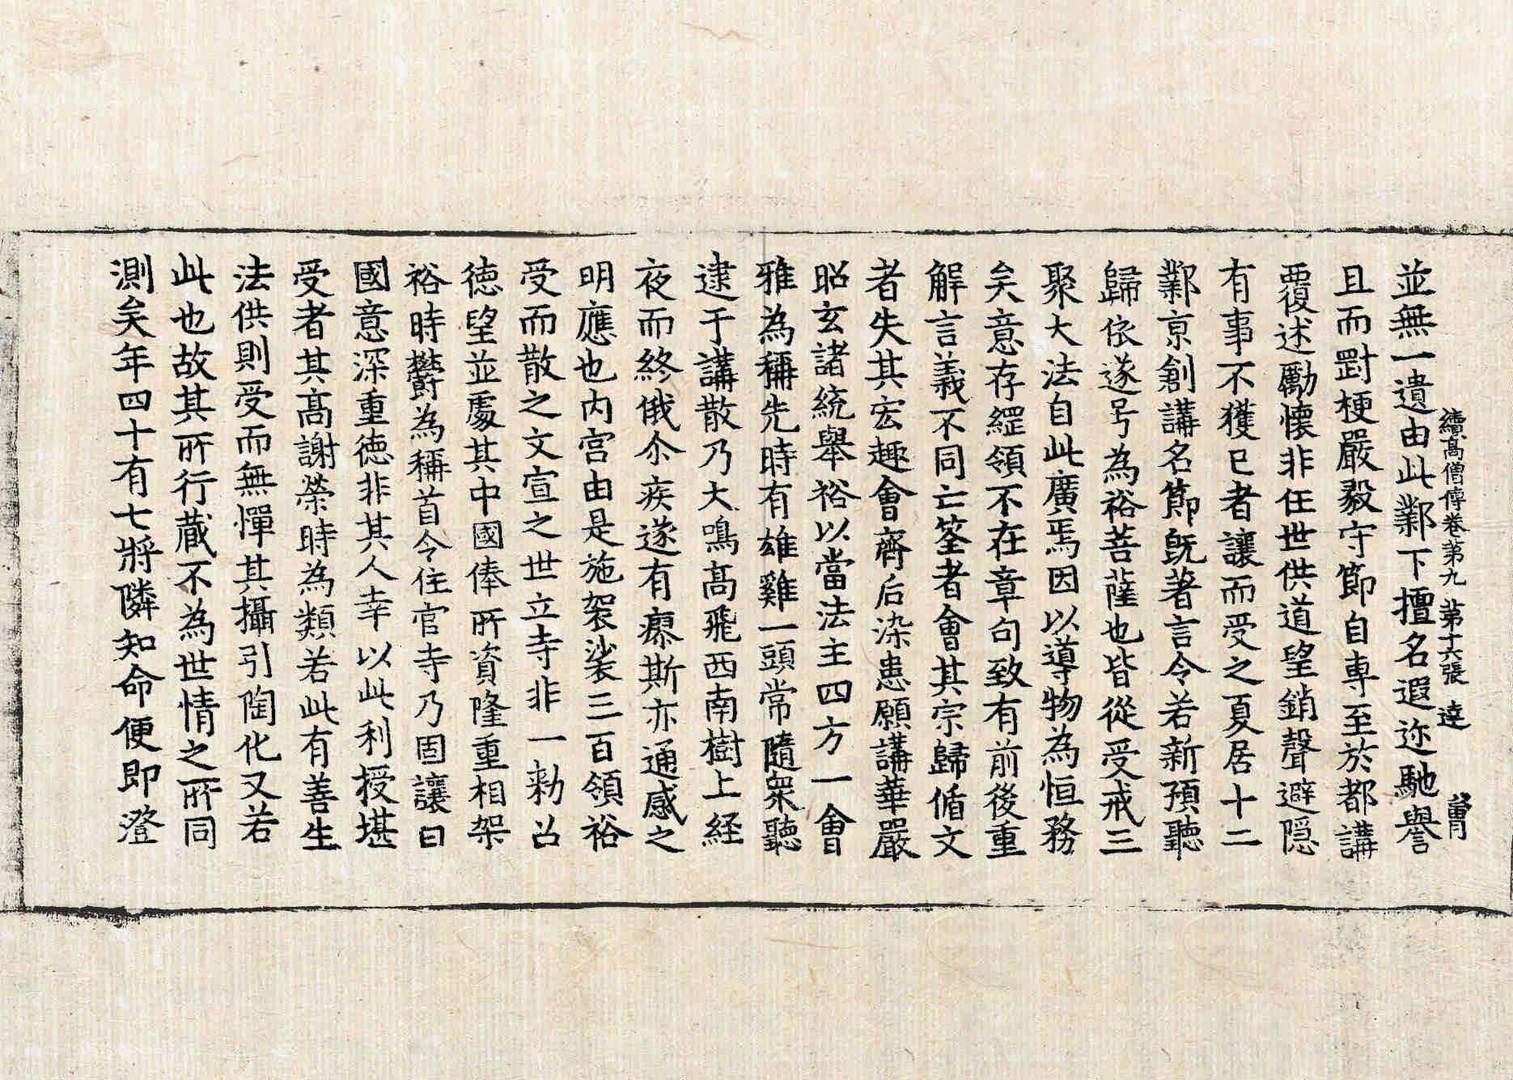 續高僧傳卷第九 第十六張 達
並無一遺由此鄴下擅名遐迩馳譽
且而剛梗嚴毅守節自專至於都講
覆述勵懷非任世供道望銷聲避隠
有事不獲已者讓而受之夏居十二
鄴京創講名節既著言令若新預聽
歸依遂号為裕菩薩也皆從受戒三
聚大法自此廣焉因以導物為恒務
矣意存綱領不在章句致有前後重
解言義不同亡筌者會其宗歸循文
者失其宏趣會齊后染患願講華嚴
昭玄諸統舉裕以當法主四方一會
雅為稱先時有雄雞一頭常隨衆聽
逮于講散乃大鳴高飛西南樹上経
夜而終俄尒疾遂有瘳斯亦通感之
明應也内宮由是施袈裟三百領裕
受而散之文宣之世立寺非一勑召
德望並處其中國俸所資隆重相架
裕時鬱為稱首令住官寺乃固讓曰
國意深重德非其人幸以此利授堪
受者其高謝榮時為類若此有善生
法供則受而無憚其攝引陶化又若
此也故其所行藏不為世情之所同
測矣年四十有七將隣知命便即澄